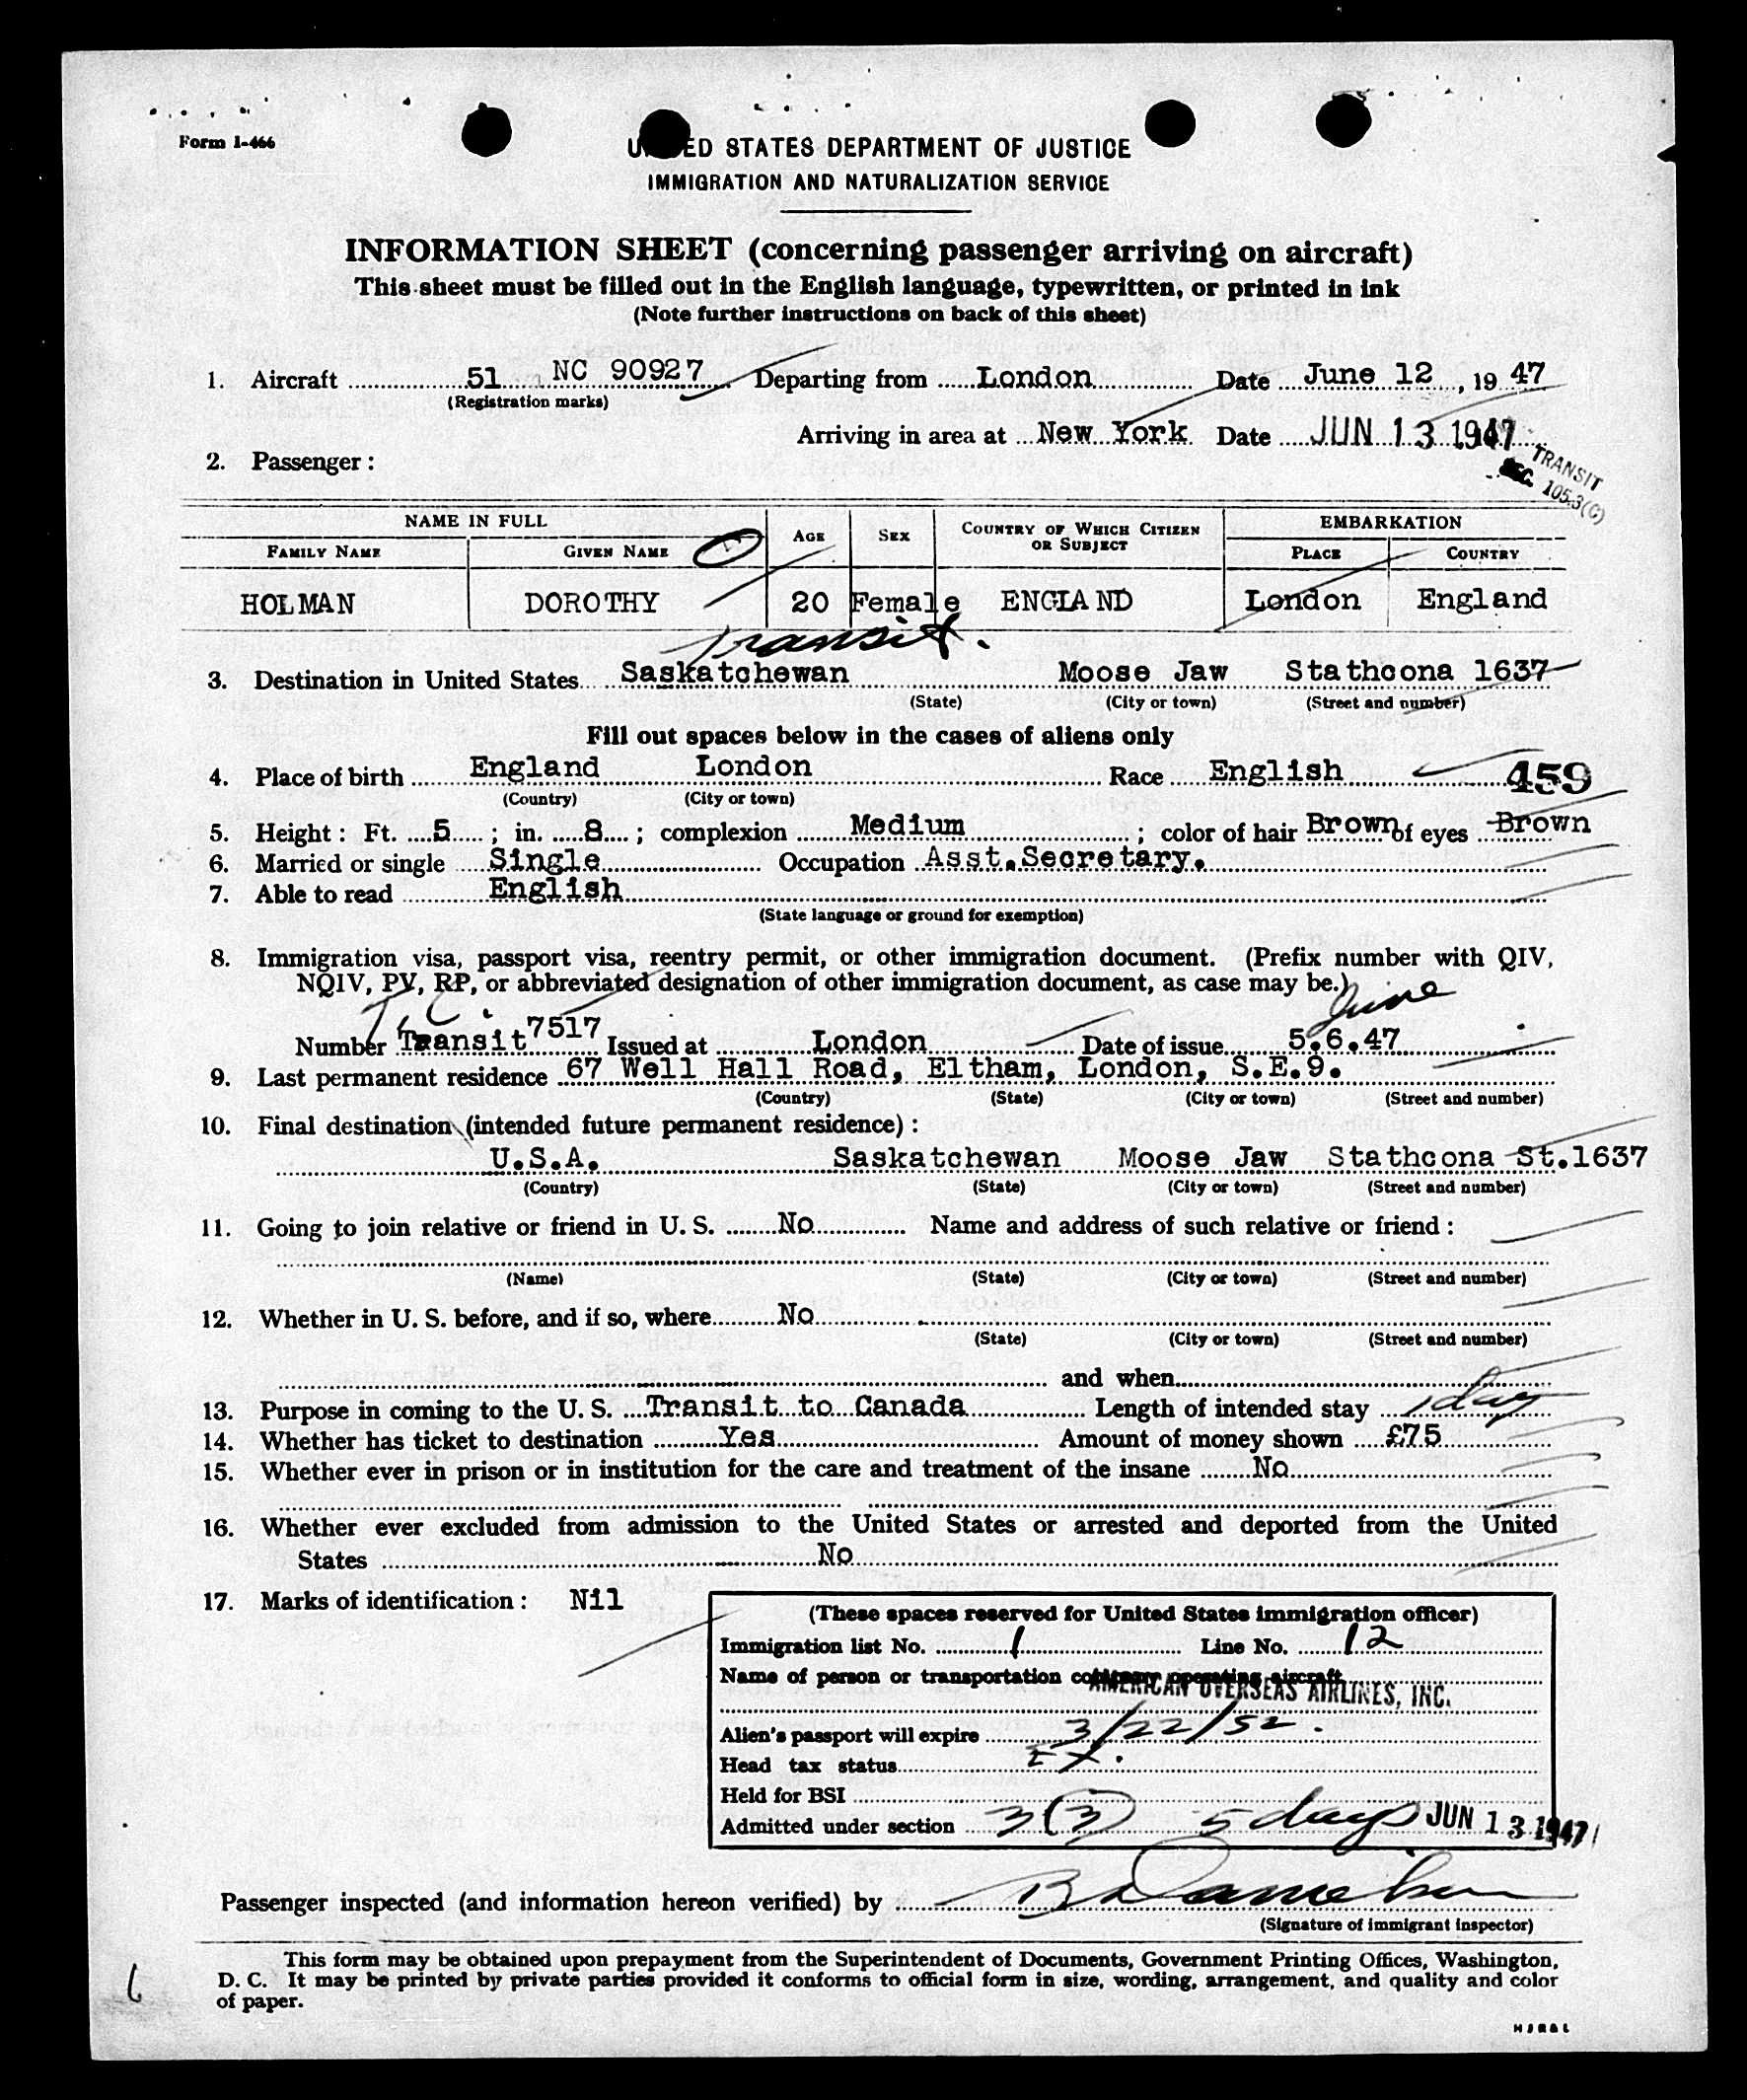 Form I-466
UNITED STATES DEPARTMENT OF JUSTICE
IMMIGRATION AND NATURALIZATION SERVICE
INFORMATION SHEET (concerning passenger arriving on aircraft)
This sheet must be filled out in the English language, typewritten, or printed in ink
(Note further instructions on back of this sheet)
1. Aircraft 51 NC 90927 Departing from London Date June 12, 19 47
(Registration marks)
Arriving in area at New York Date JUN 13 1947
TRANSIT
SEC. 105.3(C)
2. Passenger:
NAME IN FULL AGE SEX COUNTRY OF WHICH CITIZEN OR SUBJECT EMBARKATION
FAMILY NAME GIVEN NAME PLACE COUNTRY
HOLMAN DOROTHY 20 Female ENGLAND London England
Transit.
3. Destination in United States Saskatchewan Moose Jaw Stathcona 1637
(State) (City or town) (Street and number)
Fill out spaces below in the cases of aliens only
4. Place of birth England London Race English 459
(Country) (City or town)
5. Height: Ft. 5; in. 8; complexion Medium; color of hair Brown of eyes Brown
6. Married or single Single Occupation Asst.Secretary.
7. Able to read English
(State language or ground for exemption)
8. Immigration visa, passport visa, reentry permit, or other immigration document. (Prefix number with QIV,
NQIV, PV, RP, or abbreviated designation of other immigration document, as case may be.)
T.C. June
Number Transit 7517 Issued at London Date of issue 5.6.47
9. Last permanent residence 67 Well Hall Road, Eltham, London, S.E.9.
(Country) (State) (City or town) (Street and number)
10. Final destination (intended future permanent residence):
U.S.A. Saskatchewan Moose Jaw Stathcona St.1637
(Country) (State) (City or town) (Street and number)
11. Going to join relative or friend in U. S. No Name and address of such relative or friend:
(Name) (State) (City or town) (Street and number)
12. Whether in U. S. before, and if so, where No
(State) (City or town) (Street and number)
and when
13. Purpose in coming to the U. S. Transit to Canada Length of intended stay 1 day
14. Whether has ticket to destination Yes Amount of money shown £75
15. Whether ever in prison or in institution for the care and treatment of the insane No
16. Whether ever excluded from admission to the United States or arrested and deported from the United
States No
17. Marks of identification: Nil
(These spaces reserved for United States immigration officer)
Immigration list No. 1 Line No. 12
Name of person or transportation company operating aircraft
AMERICAN OVERSEAS AIRLINES, INC.
Alien's passport will expire 3/22/52.
Head tax status Ex.
Held for BSI
Admitted under section 3(3) 5 days JUN 13 1947
Passenger inspected (and information hereon verified) by
(Signature of immigrant inspector)
This form may be obtained upon prepayment from the Superintendent of Documents, Government Printing Offices, Washington,
D. C. It may be printed by private parties provided it conforms to official form in size, wording, arrangement, and quality and color
of paper.